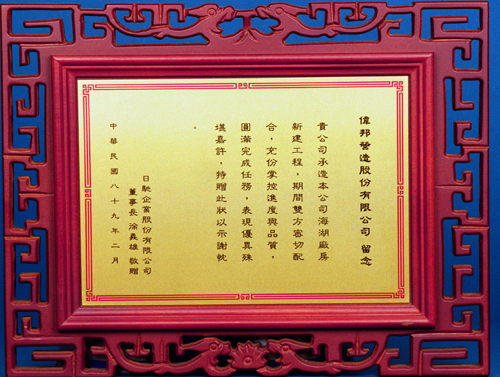 偉邦營造股份有限公司 留念
貴公司承造本公司海湖廠房
新建工程，期間雙方密切配
合，充份掌控進度與品質，
圓滿完成任務，表現優異殊
堪嘉許，特贈此狀以示謝忱
日馳企業股份有限公司
董事長 涂義雄 敬贈
中華民國八十九年二月